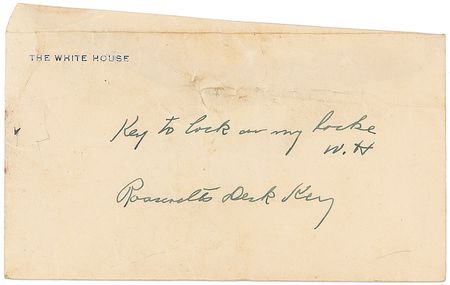 THE WHITE HOUSE
Key to lock on my locke
W.H
Roosevelts Desk Key